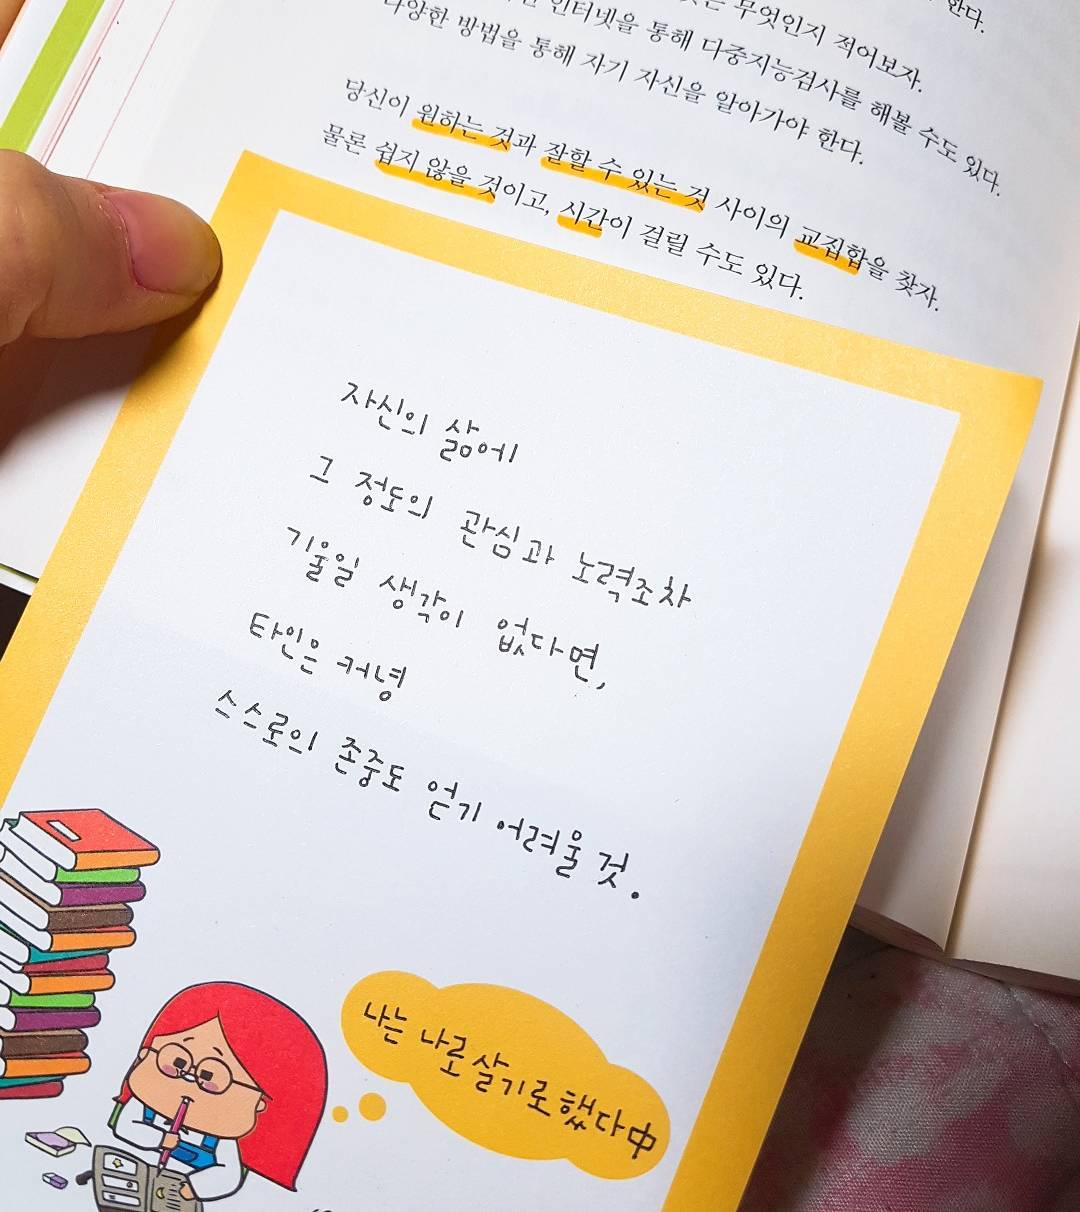 한다.
무엇인지 적어보자.
인터넷을 통해 다중지능검사를 해볼 수도 있다.
다양한 방법을 통해 자기 자신을 알아가야 한다.
당신이 원하는 것과 잘할 수 있는 것 사이의 교집합을 찾자.
물론 쉽지 않을 것이고, 시간이 걸릴 수도 있다.
자신의 삶에
그 정도의 관심과 노력조차
기울일 생각이 없다면,
타인은 커녕
스스로의 존중도 얻기 어려울 것.
나는 나로 살기로 했다中